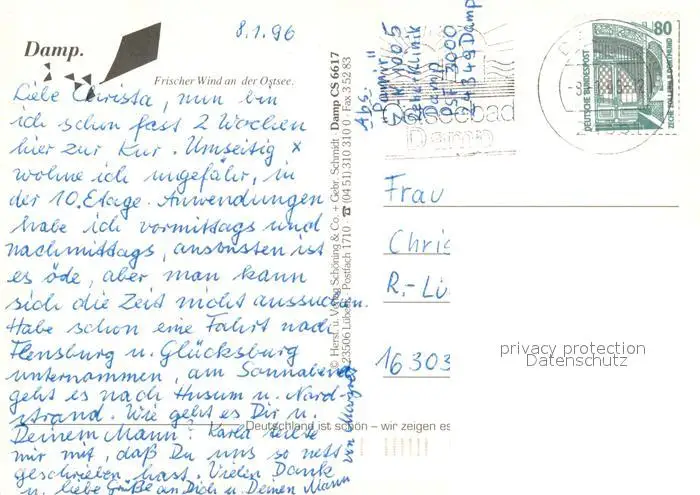 8.1.96
Damp.
Frischer Wind an der Ostsee.
Liebe Christa, nun bin
ich schon fast 2 Wochen
hier zur Kur. Umseitig x
wohne ich ungefähr, in
der 10. Etage. Anwendungen
habe ich vormittags und
nachmittags, ansonsten ist
es öde, aber man kann
sich die Zeit nicht aussuchen.
Habe schon eine Fahrt nach
Flensburg u. Glücksburg
unternommen, am Sonnabend
geht es nach Husum u. Nord-
strand. Wie geht es Dir u.
Deinem Mann? Karla teilte
mir mit, daß Du uns so nett
geschrieben hast. Vielen Dank
u. liebe Grüße an Dich u. Deinen Mann
von
© Herst. u. Verlag Schöning & Co. + Gebr. Schmidt
23506 Lübeck · Postfach 1710 · ☎ (04 51) 310 310 · Fax 3 52 83
Damp CS 6617
Abs.
Reha-Klinik
Damp
PSF 3000
24349 Damp
Ostseebad
Damp
80
DEUTSCHE BUNDESPOST
ZECHE ZOLLERN II DORTMUND
Frau
Chris
R.-Lu
16303
privacy protection
Datenschutz
Deutschland ist schön – wir zeigen es